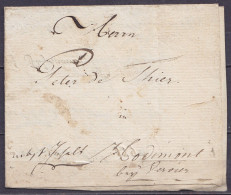 Herrn
Peter de Thier
in
Hodimont
bey Vervier